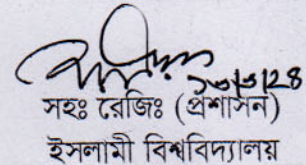 সহঃ রেজিঃ (প্রশাসন)
ইসলামী বিশ্ববিদ্যালয়